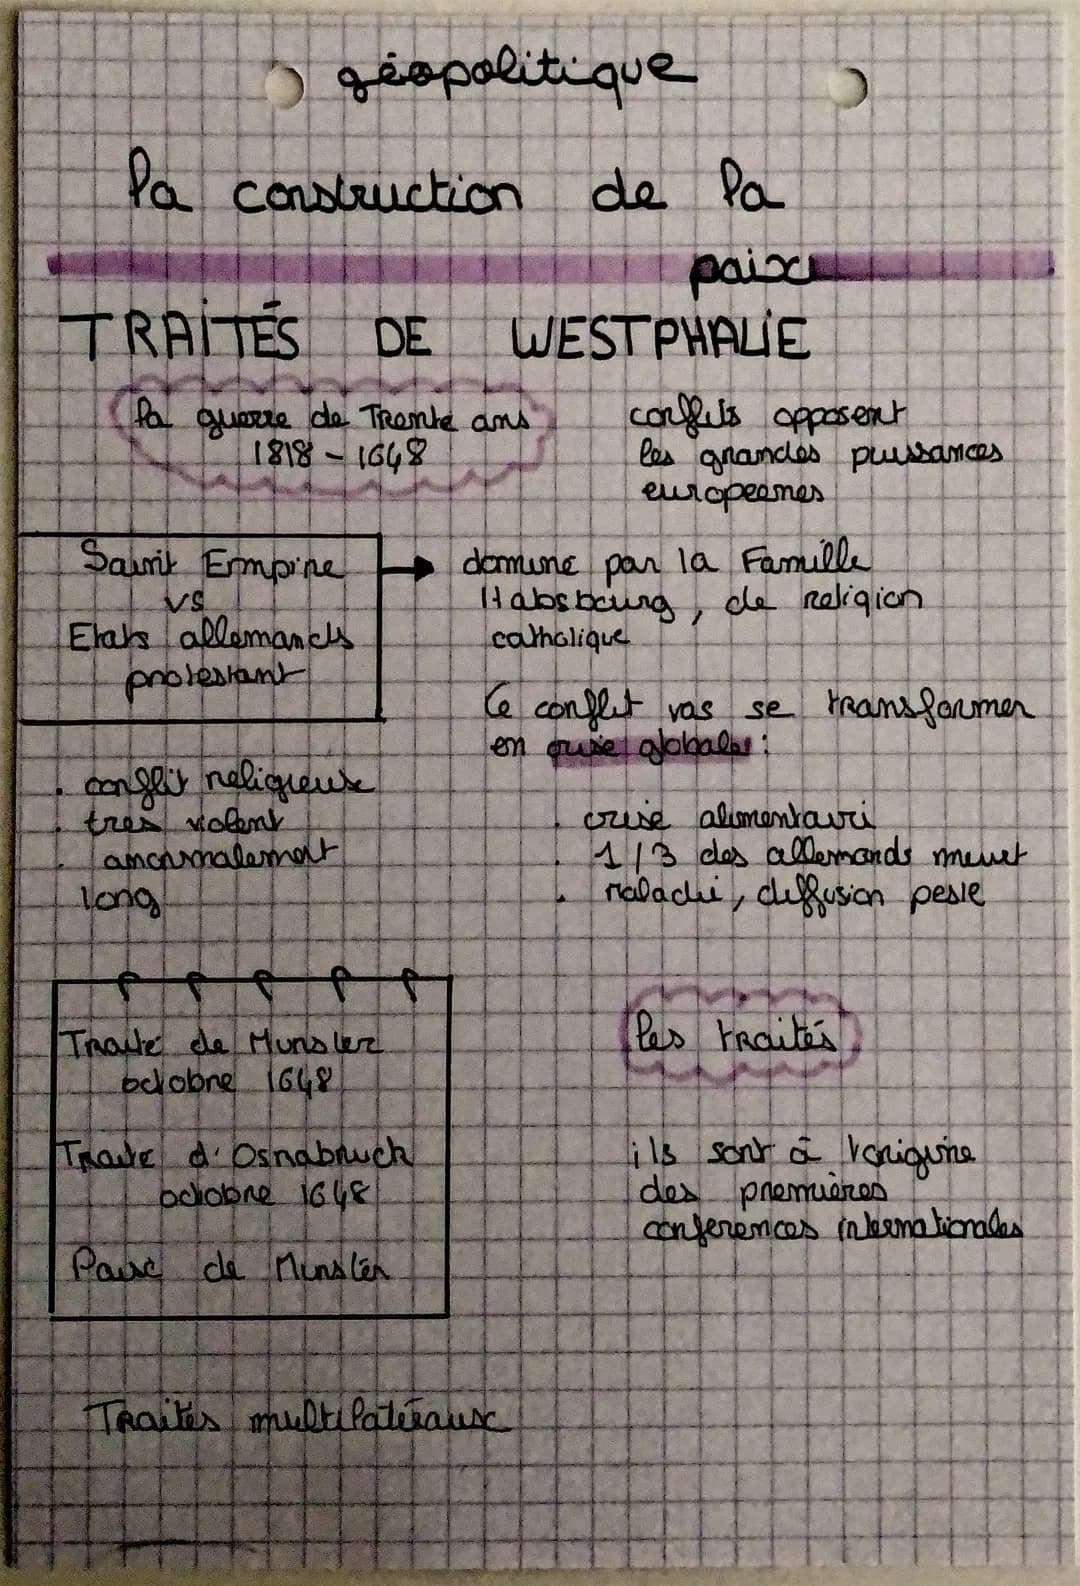 géopolitique
la construction de la
paix
TRAITÉS DE WESTPHALIE
la guerre de Trente ans
1818 - 1648
conflits opposent
les grandes puissances
europeenes
Saint Empire
vs
Etats allemands
protestant
domine par la Famille
Habsbourg, de religion
catholique
Ce conflit vas se transformer
en crise globale :
. conflit religieuse
. tres violent
. anormalement
long
. crise alimentairi
. 1/3 des allemands meurt
. maladie, diffusion peste
Traité de Munster
octobre 1648
Traité d'Osnabruck
octobre 1648
Paix de Munster
les traités
ils sont à l'origine
des premières
conferences internationales
Traités multilatéraux